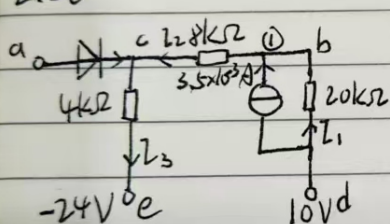 a c I₂ 8kΩ ① b
3.5x10³A
4kΩ 20kΩ
I₃ I₁
-24V e 10V d